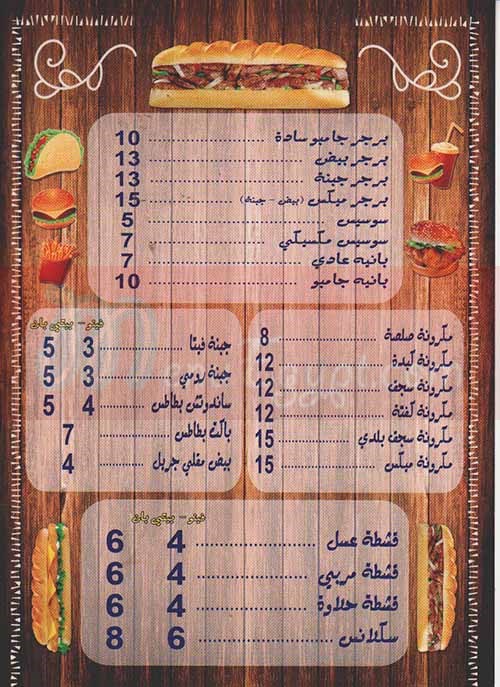 برجر جامبو سادة 10
برجر بيض 13
برجر جبنة 13
برجر ميكس (بيض - جبنة) 15
سوسيس 5
سوسيس مكسيكي 7
بانيه عادي 7
بانيه جامبو 10
فينو - بيتي بان
جبنة فيتا 3 5
جبنة رومي 3 5
ساندوتش بطاطس 4 5
باكت بطاطس 7
بيض مقلي جريل 4
مكرونة صلصة 8
مكرونة كبدة 12
مكرونة سجف 12
مكرونة كفتة 12
مكرونة سجف بلدي 15
مكرونة ميكس 15
فينو - بيتي بان
قشطة عسل 4 6
قشطة مربى 4 6
قشطة حلاوة 4 6
سكلانس 6 8